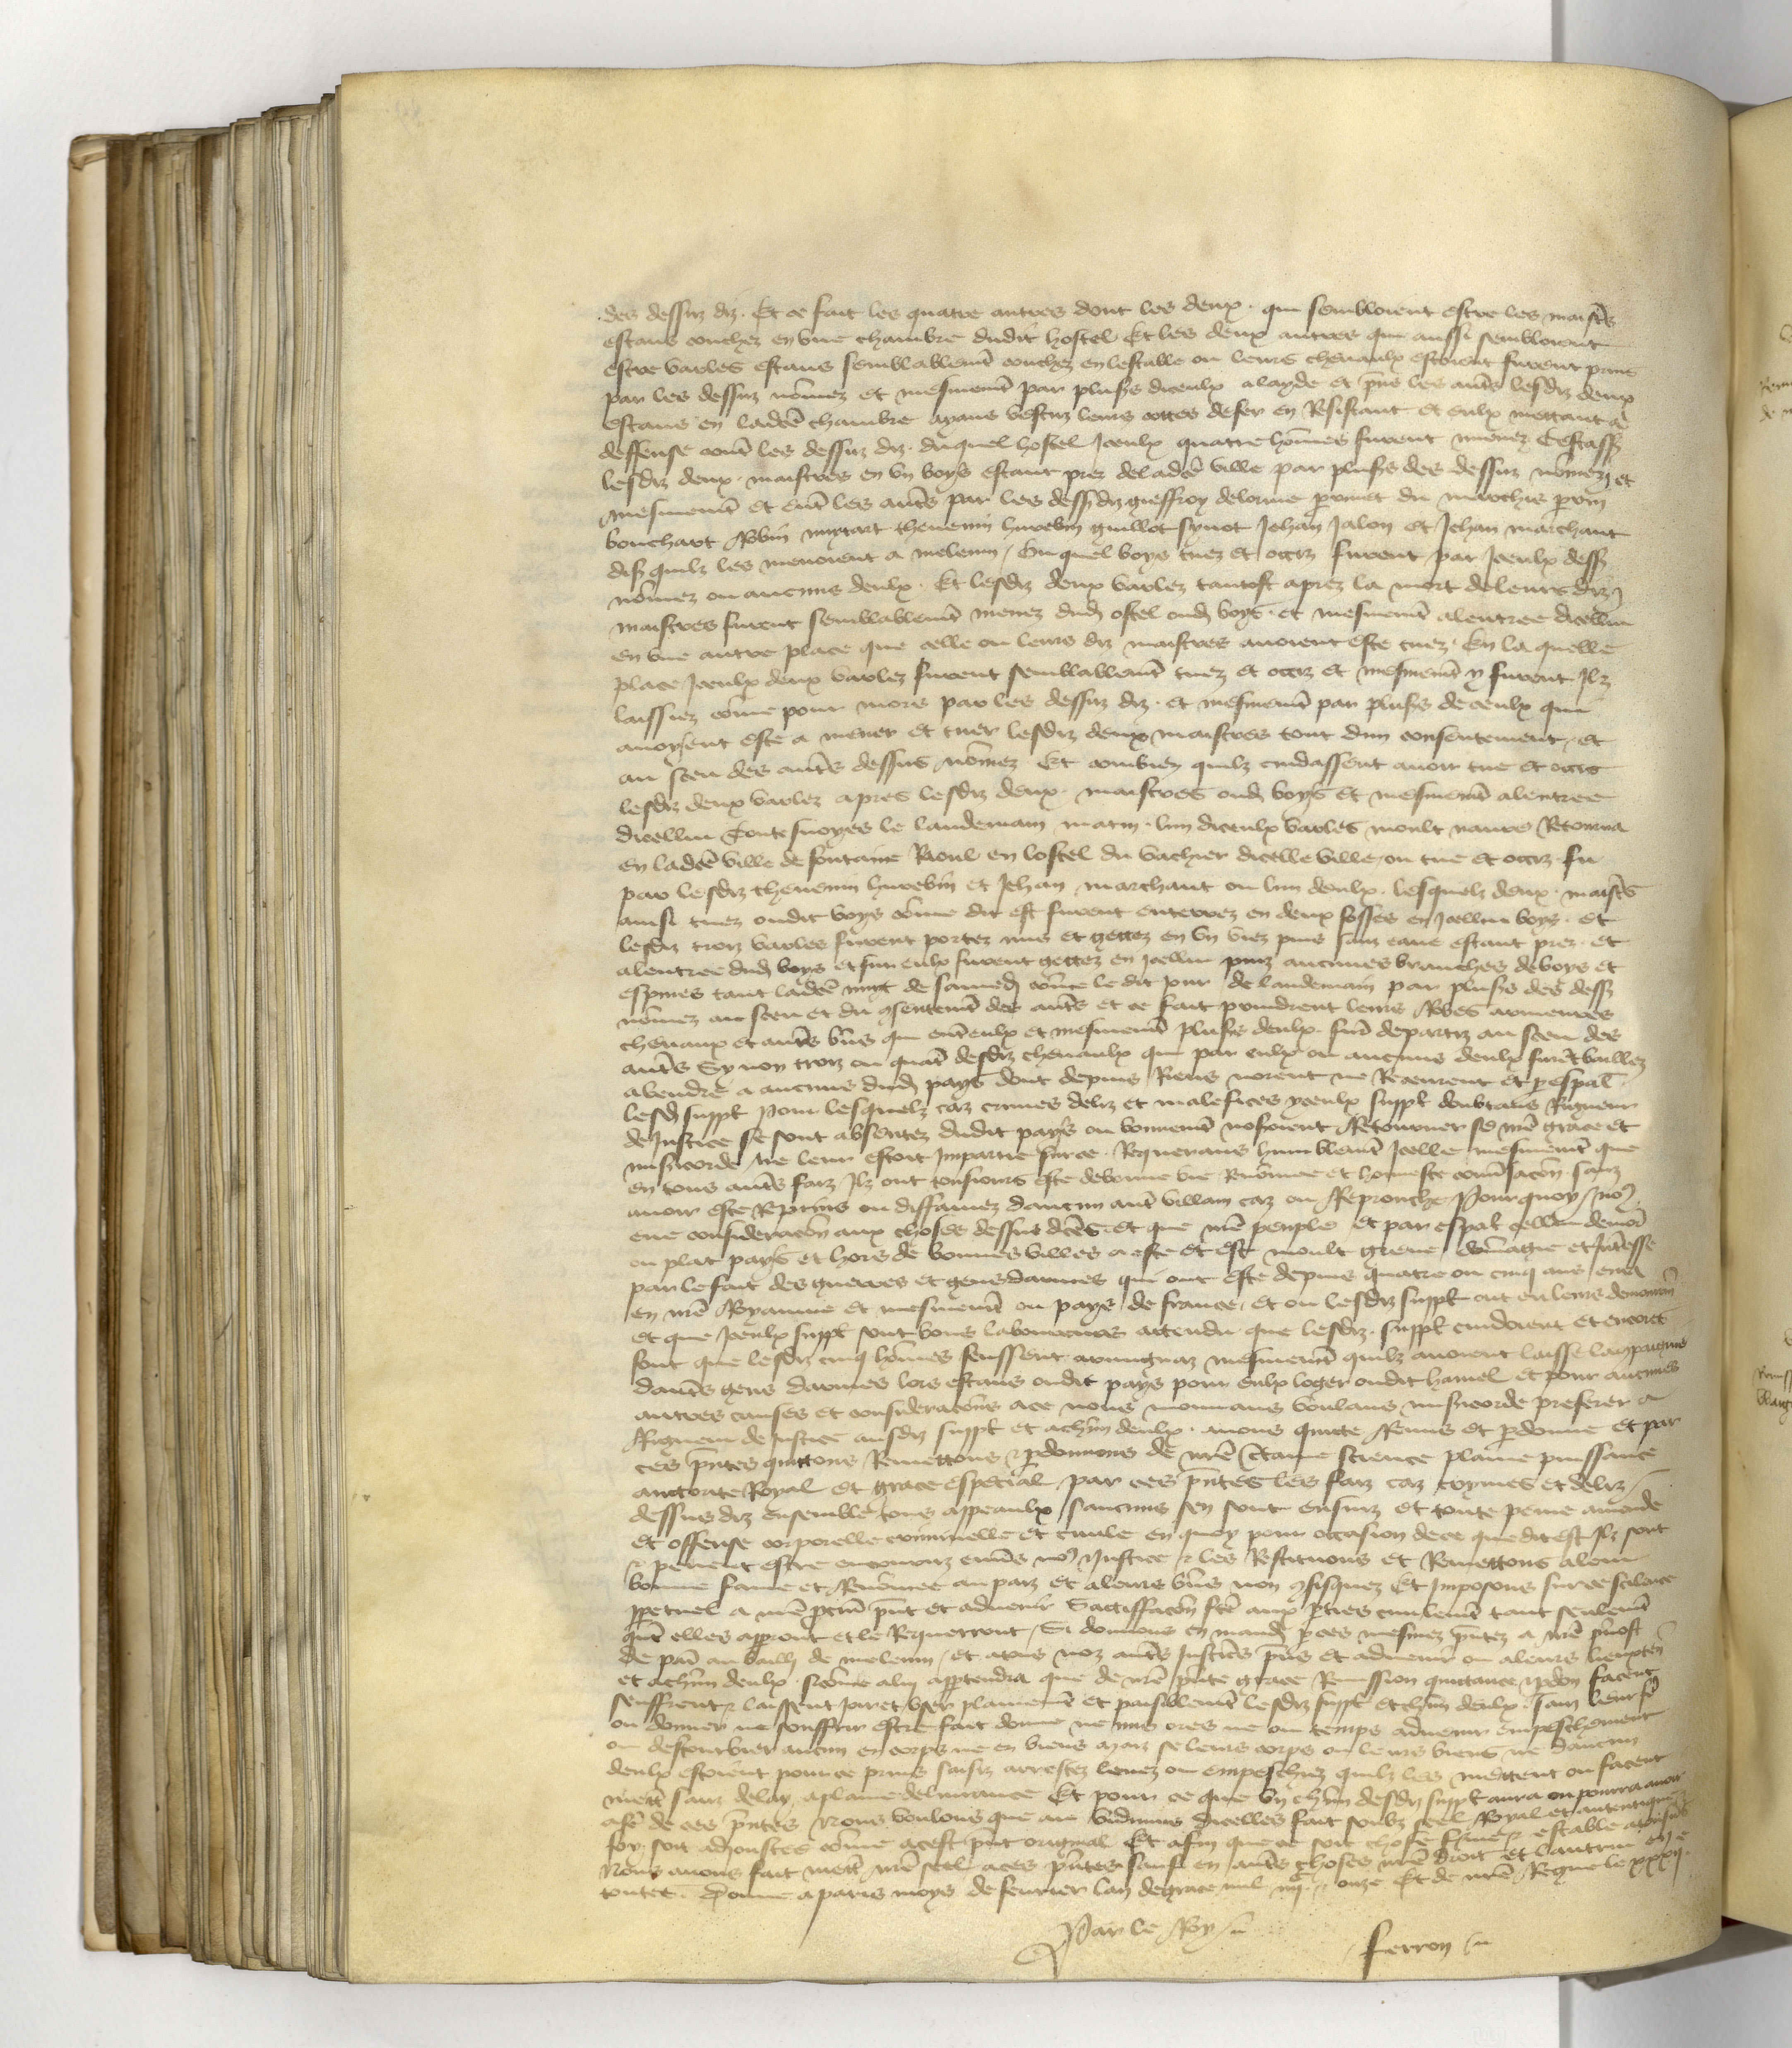 des dessuz diz. Et ce fait les quatre autres dont les deux. qui sembloient estre les maistrs
estans couchez en une chambre dudit hostel Et les deux autres que aussi sembloient
estre varles estans semblablemt couchez en lestable ou leurs chevaulx estoient furent prins
par les dessuz nommez et mesmemt par plusrs diceulx alayde et pns les autrs lesdiz deux
estans en ladce chambre ayans vestuz leurs cottes defer en Resistant et eulx mettant a
deffense contre les dessuz diz. duquel hostel Iceulx quatre hommes furent menez Cestass
lesdiz deux. maistres en un boys estant prez deladce ville par plusrs des dessuz nommez et
mesmemt et entre les autrs par les dess diz gieffroy delorme perrinet du perrin
bouchart Robin thevenin hurebin guillot synot Jehan Jalon et Jehan marchant
dis quilz les menoient a meleun. Ou quel boys tuez et occiz furent par Iceulx dess
nommez ou aucuns deulx. Et lesdiz deux varlez tantost aprez la mort deleurs diz
maistres furent semblablemt menez dud ostel oud boys. et mesmemt alentree dicellui
en une autre place que celle ou leurs diz maistres avoient este tuez. En la quelle
place Iceulx deux varlez furent semblablemt tuez et occiz et mesmemt y furent Ilz
laissiez comme pour mors par les dessuz diz. et mesmemt par plusrs de ceulx qui
avoyent este a mener et tuer lesdiz deux maistres tout dun consentement. et
au sceu des autrs dessus nommez Et combien quilz cuidassent avoir tue et occis
lesdiz deux varlez apres lesdiz deux. maistres oud boys et mesmemt alentree
dicellui Toutesvoyes le landemain matin. lun diceulx varles moult navre Retourna
en ladce ville de fontaine Raoul en lostel du vachier dicelle ville. ou tue et occiz fu
par lesdiz thevenin hurebin et Jehan marchant ou lun deulx. lesquelz deux. maistrs
ainsi tuez oudit boys comme dit est furent enterrez en deux fosses en Icellui boys. et
lesdiz troiz varles furent portez nus et gettez en un viez puis sanz eaue estant prez. et
alentree dud boys et sur eulx furent gettez en icellui puiz aucunes branches deboys et
espines tant ladce nuyt de samedi comme le dit jour de landemain par plusrs des dess
nommez au sceu et du consentemt des autrs et ce fait prindrent leurs Robes armeures
chevaux et autrs biens qui entre eulx et mesmemt plusrs deulx. furent departiz au sceu des
autrs Synon troiz ou quatre desdiz chevaulx qui par eulx ou aucuns deulx furent bailliez
avendre a aucuns dud pays dont depuis Riens norent ne Receurent et p espal
lesd supplt Pour lesquelz caz crimes deliz et malefices yceulx supplt doubtans Rigueur
de justice se sont absentez dudit pays ou bonnemt noseroient Retourner se nre grace et
misericorde ne leur estoit Impartie sur ce. Requerans humblemt Icelle mesmemt que
en tous autrs faiz Ilz ont tousiours este debonne vie Renommee et honneste conversacon sanz
avoir este Reprins ou diffamez daucun autre villain caz ou Reprouche Pourquoy Nous
eue consideracon aux choses dessus dces. et que nre peuple et par espal cellui demourant
ou plat pays et hors de bonnes villes a este et est moult greve dommagie et
par le fait des guerres et gensdarmes qui ont este depuis quatre ou cinq ans enca
en nre Royaume et mesmemt ou pays de france. et ou lesdiz supplt ont eu leurs
et que Iceulx supplt sont bons laboureurs attendu que lesdiz. supplt cuidoient et encores
font que lesdiz cinq hommes feussent arminagaz mesmemt quilz avoient laisse la compaignie
dautrs gens darmes lors estans oudit pays pour eulx loger oudit hamel et pour aucunes
autres causes et consideracons ace nous mouvans voulans misericorde preferer a
Rigueur de justice ausdiz supplt et achun deulx. avons quicte Remis et pdonne et par
ces pntes quittons Remettons et pdonnons de nre ctaine science plaine puissance
auctorite Royal et grace especial par ces pntes les faiz caz crymes et deliz
dessus diz ensemble tous appeaulx saucuns sen sont ensuiz et toute peine amende
et offense corporelle criminelle et civile en quoy pour occasion dece que dit est Ilz sont
et pevent estre encouruz envs nous et Justice et les Restituons et Remettons aleur
bonne fame et Renommee au paiz et aleurs biens non confisquez Et Imposons sur ce scilence
ppetuel a nre pcur pnt et advenir Sattisffacon fcte aux pties civilemt tant seulemt
quant elles apperront et le Requerront. Si donnons en mand p ces mesmez pntez a nre prevost
de par au bailli de meleun. et atous noz autrs Justicrs pns et advenir ou aleurs lieuxten
et achun deulx. sicomme alui appartendra que de nre pnte grace Remission quittance et pdon facent
seuffrent et laissent Joir et user plainemt et paisiblemt lesdiz supplt et chun deulx. sanz leur fe
ou donner ne souffrir estre fait donne ne mis ores ne ou temps advenir empeschement
ou destourbier aucun en corps ne en biens maiz se leurs corps ou leurs biens ne daucun
deulx estoient pource prins saisiz arrestez levez ou empeschiez quilz les mettent ou facent
mettre sanz delay aplaine delivrance Et pour ce que un chun desdiz supplt aura ou pourra avoir
afe de ces pntes Nous voulons que au vidimus dicelles fait soubz seel Royal et autentique
foy soit adjoustee comme acest pnt original Et afin que ce soit chose ferme et estable atousiours
Nous avons fait mettre nre seel aces pntes sauf en autrs choses nre droit et lautrui en
toutes. Donne aparis moys de fevrier lan degrace mil iiijc. et onze Et de nre Regne le xxxij
Par le Roy
ferron